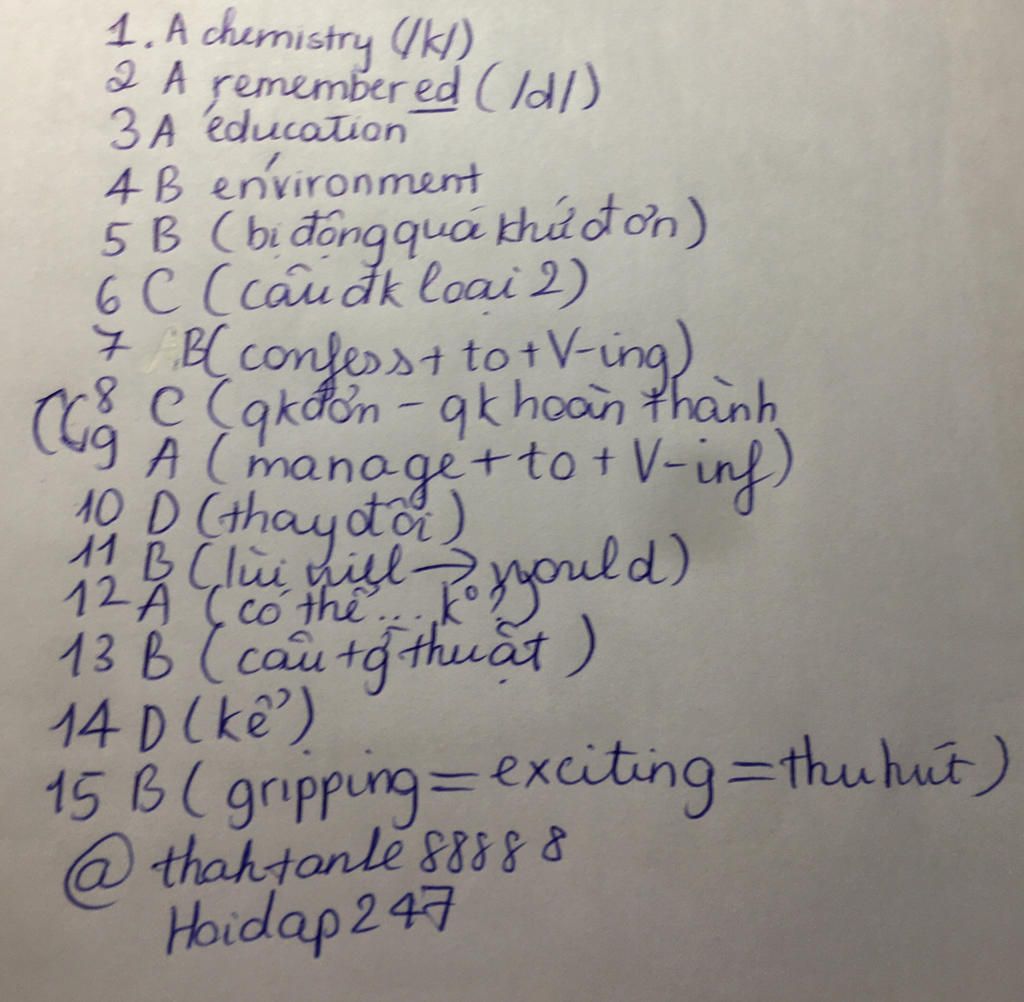 1. A chemistry (/k/)
2 A remembered (/d/)
3 A éducation
4 B en'vironment
5 B (bị động quá khứ đơn)
6 C (câu đk loại 2)
7 B (confess + to + V-ing)
8 C (qk đơn - qk hoàn thành
9 A (manage + to + V-inf)
10 D (thay đổi)
11 B (lùi will → would)
12 A (có thể... k°?)
13 B (câu tg thuật)
14 D (kể)
15 B (gripping = exciting = thu hút)
@ thahtanle88888
Hoidap247